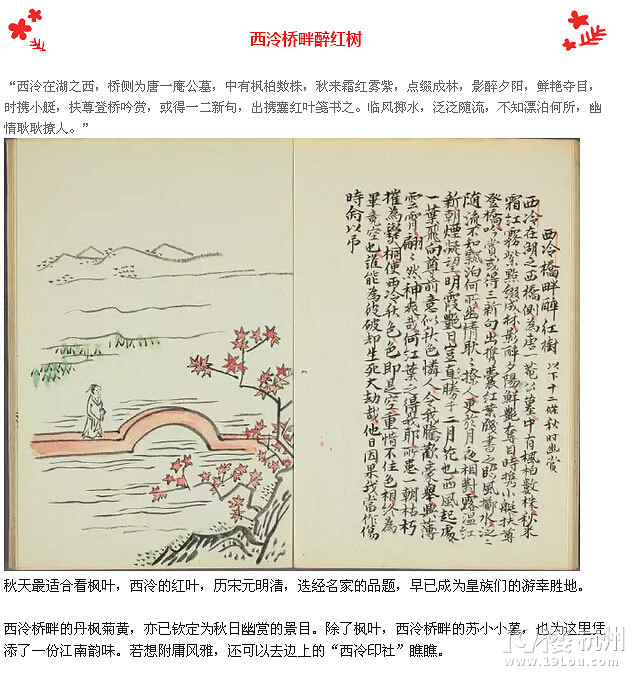 西泠桥畔醉红树
“西泠在湖之西，桥侧为唐一庵公墓，中有枫柏数株，秋来霜红雾紫，点缀成林，影醉夕阳，鲜艳夺目，
时携小艇，扶尊登桥吟赏，或得一二新句，出携囊红叶笺书之。临风掷水，泛泛随流，不知漂泊何所，幽
情耿耿撩人。”
西泠橋畔醉紅樹 以下十二條秋時幽賞
西泠在湖之西橋側為唐一菴公墓中有楓柏數株秋来
霜紅霧紫點綴成林影醉夕陽鮮艷奪目時攜小艇扶尊
登橋吟賞或得一二新句出攜囊紅葉牋書之臨風擲水泛泛
隨流不知飄泊何所幽情耿耿撩人更於月夜相對露溫紅
新朝煙凝望明霞艷日豈直勝于二月花也西風起處
一葉飛向尊前意似秋色憐人令我騰歡豪舉興薄
雲霄翩翩然神爽哉何紅葉之得我耶所患一朝枯朽
摧為爨桐使西泠秋色色即是空重惜不住色相終為
畢竟空也誰能為彼破却生死大劫哉他日因果我當作傷
時命以吊
秋天最适合看枫叶，西泠的红叶，历宋元明清，迭经名家的品题，早已成为皇族们的游幸胜地。
西泠桥畔的丹枫菊黄，亦已钦定为秋日幽赏的景目。除了枫叶，西泠桥畔的苏小小墓，也为这里凭
添了一份江南韵味。若想附庸风雅，还可以去边上的“西泠印社”瞧瞧。
19楼杭州
www.19lou.com